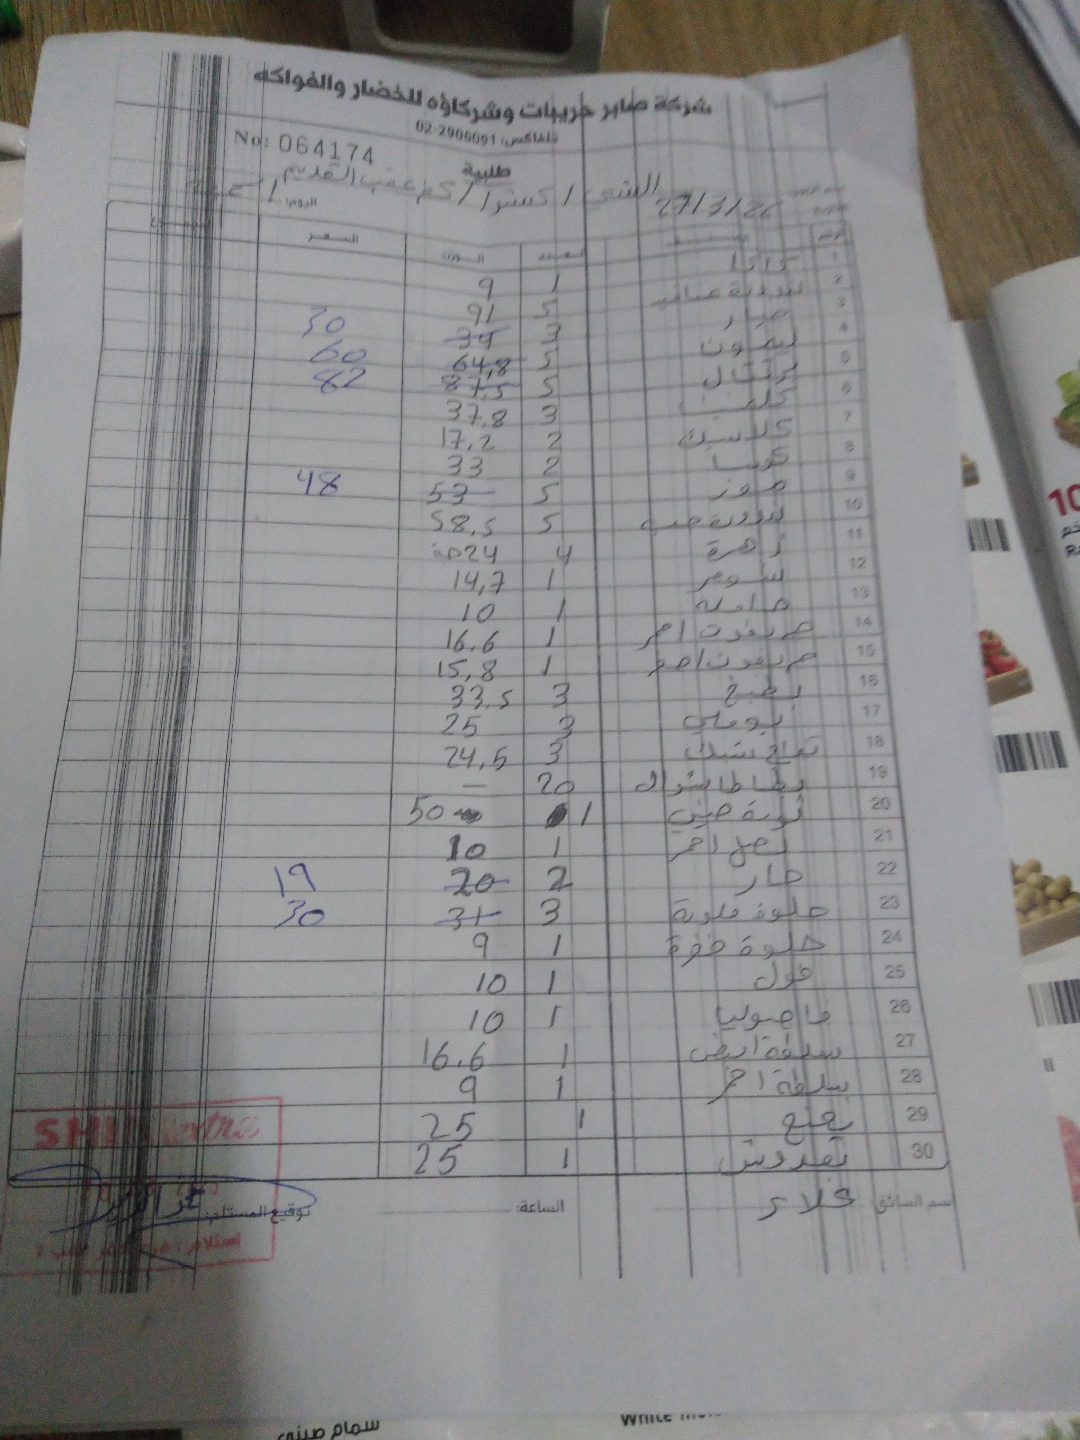 شركة صابر حريبات وشركاؤه للخضار والفواكه
تلفاكس: 02-2906091
No: 064174
طلبية
الشني / اكسترا / كفر عقب القديم
27/3/
اليوم:
العدد الوزن السعر
1 1 9
2 بندورة عناقيد 5 91
3 خيار 3 34 30
4 ليمون 5 64,8 60
5 برتقال 5 87,5 82
6 3 37.8
7 كلاسيك 2 17.2
8 كوسا 2 33
9 موز 5 53 48
10 بندورة حب 5 58,5
11 زهرة 4 24 حبة
12 شومر 1 14,7
13 1 10
14 جريفوت احمر 1 16.6
15 جريفوت اصفر 1 15,8
16 بطيخ 3 33.5
17 بوملي 3 25
18 تفاح 3 24,5
19 بطاطا شوال 20 –
20 ثومة صيني 1 50
21 بصل احمر 1 10
22 حار 2 20 19
23 حلوة ملونة 3 31 30
24 حلوة 1 9
25 فول 1 10
26 فاصوليا 1 10
27 ابيض 1 16.6
28 احمر 1 9
29 نعنع 1 25
30 بقدونس 1 25
اسم السائق: علاء الساعة: توقيع المستلم:
SHINI extra
سمام صيني
White
10